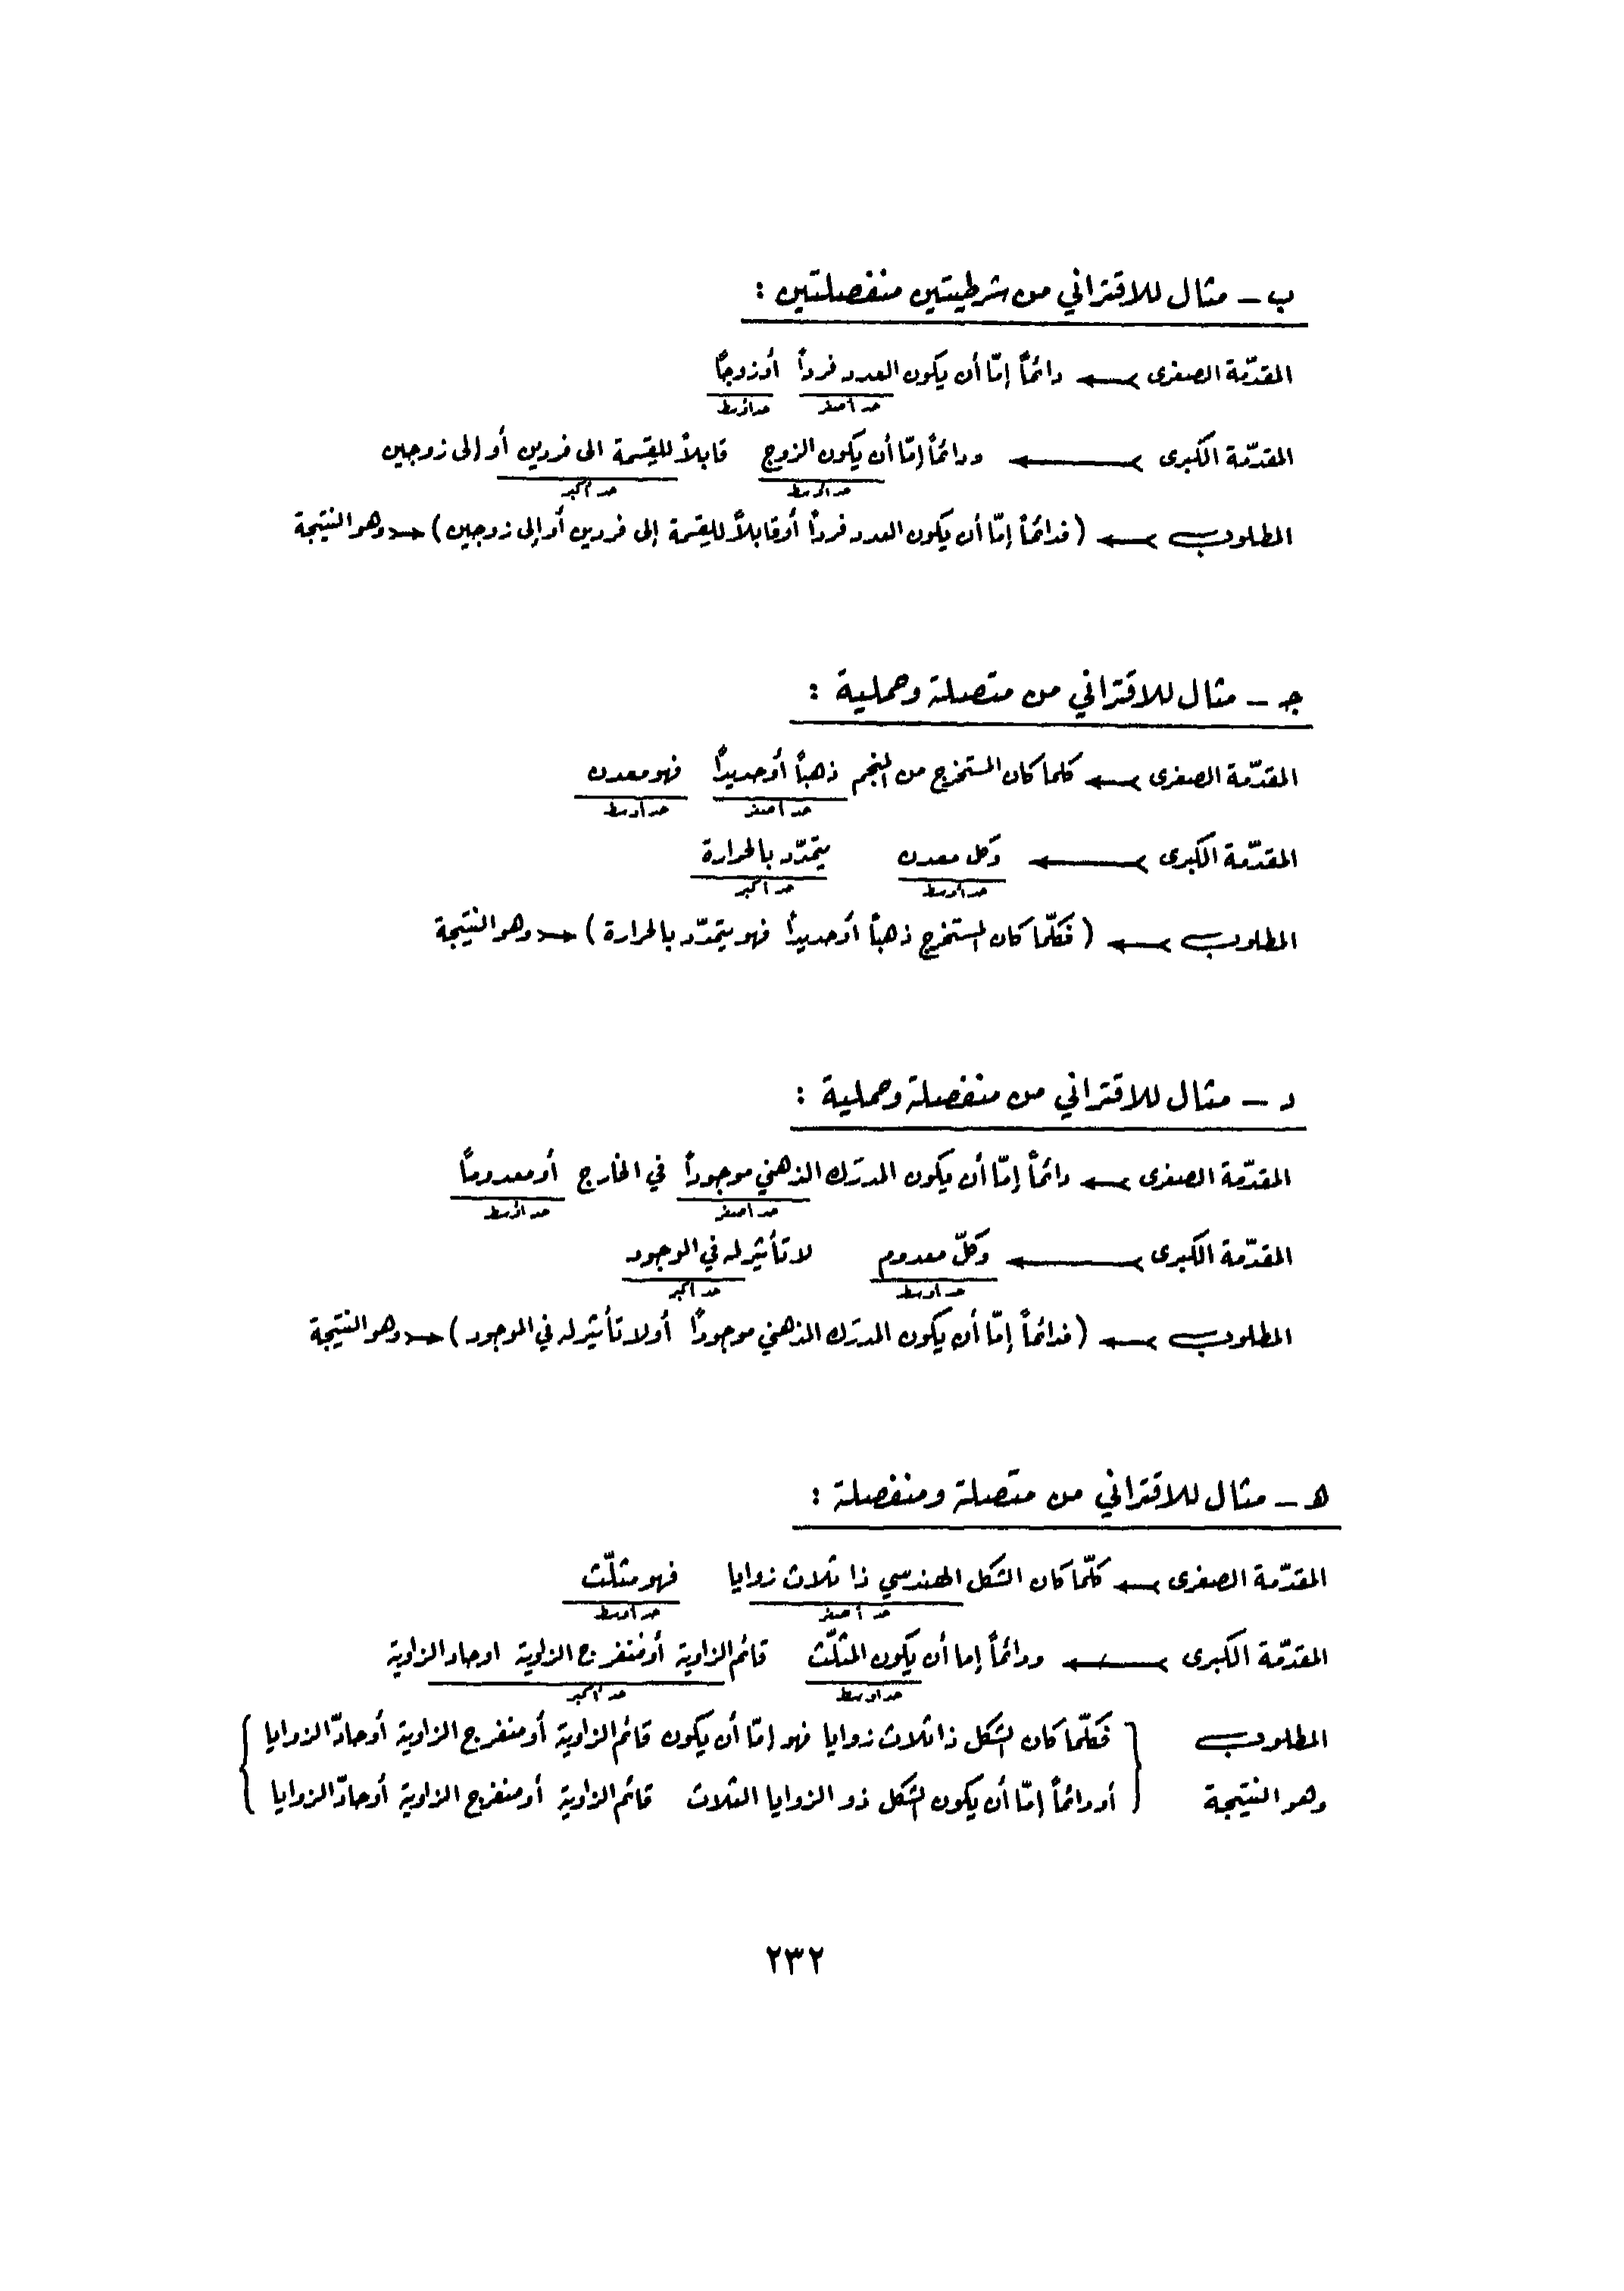 ب - مثال للاقتراني من شرطيتين منفصلتين :
المقدّمة الصغرى ← دائماً إمّا أن يكون العدد فرداً أو زوجاً
حد أصغر حد أوسط
المقدّمة الكبرى ← ودائماً إمّا أن يكون الزوج قابلاً للقسمة الى فردين أو إلى زوجين
حد أوسط حد أكبر
المطلوب ← ( فدائماً إمّا أن يكون العدد فرداً أو قابلاً للقسمة إلى فردين أو إلى زوجين ) ← وهو النتيجة
جـ - مثال للاقتراني من متصلة وحملية :
المقدّمة الصغرى ← كلما كان المستخرج من المنجم ذهباً أو حديداً فهو معدن
حد أصغر حد أوسط
المقدّمة الكبرى ← وكل معدن يتمدّد بالحرارة
حد أوسط حد أكبر
المطلوب ← ( فكلّما كان المستخرج ذهباً أو حديداً فهو يتمدّد بالحرارة ) ← وهو النتيجة
د - مثال للاقتراني من منفصلة وحملية :
المقدّمة الصغرى ← دائماً إمّا أن يكون المدرَك الذهني موجوداً في الخارج أو معدوماً
حد أصغر حد أوسط
المقدّمة الكبرى ← وكلّ معدوم لا تأثير له في الوجود
حد أوسط حد أكبر
المطلوب ← ( فدائماً إمّا أن يكون المدرَك الذهني موجوداً أو لا تأثير له في الموجود ) ← وهو النتيجة
هـ - مثال للاقتراني من متصلة ومنفصلة :
المقدّمة الصغرى ← كلّما كان الشكل الهندسي ذا ثلاث زوايا فهو مثلّث
حد أصغر حد أوسط
المقدّمة الكبرى ← ودائماً إما أن يكون المثلّث قائم الزاوية أو منفرج الزاوية او حاد الزاوية
حد اوسط حد أكبر
المطلوب { فكلّما كان الشكل ذا ثلاث زوايا فهو إمّا أن يكون قائم الزاوية أو منفرج الزاوية أو حادّ الزوايا }
وهو النتيجة { أو دائماً إمّا أن يكون الشكل ذو الزوايا الثلاث قائم الزاوية أو منفرج الزاوية أو حادّ الزوايا }
٢٣٢